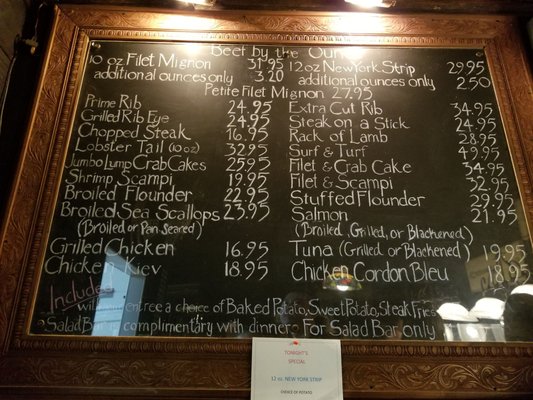 Beef by the Ounce
10 oz Filet Mignon 31.95
additional ounces only 3.20
12 oz New York Strip 29.95
additional ounces only 2.50
Petite Filet Mignon 27.95
Prime Rib 24.95
Grilled Rib Eye 24.95
Chopped Steak 16.95
Lobster Tail (10oz) 32.95
Jumbo Lump Crab Cakes 25.95
Shrimp Scampi 19.95
Broiled Flounder 22.95
Broiled Sea Scallops 23.95
(Broiled or Pan Seared)
Grilled Chicken 16.95
Chicken Kiev 18.95
Extra Cut Rib 34.95
Steak on a Stick 24.95
Rack of Lamb 28.95
Surf & Turf 49.95
Filet & Crab Cake 34.95
Filet & Scampi 32.95
Stuffed Flounder 29.95
Salmon 21.95
(Broiled, Grilled, or Blackened)
Tuna (Grilled or Blackened) 19.95
Chicken Cordon Bleu 18.95
Includes
with entree a choice of Baked Potato, Sweet Potato, Steak Fries
Salad Bar is complimentary with dinner. For Salad Bar only
TONIGHT'S
SPECIAL
12 oz. NEW YORK STRIP
CHOICE OF POTATO